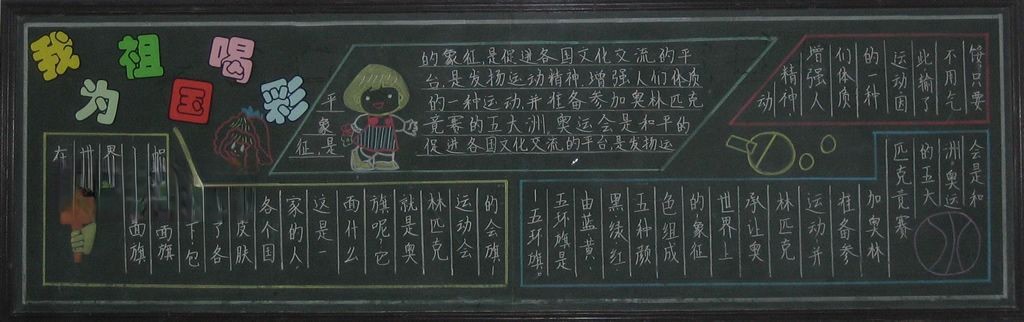 我为祖国喝彩
的象征,是促进各国文化交流的平
台.是发扬运动精神,增强人们体质
的一种运动,并准备参加奥林匹克
竞赛的五大洲,奥运会是和平的
促进各国文化交流的平台,是发扬运
平
象
征,是
馁只要
不用气
此输了
运动因
的一种
们体质
增强人
精神,
动
会是和
洲.奥运
的五大
匹克竞赛
加奥林
准备参
运动并
林匹克
承让奥
世界上
的象征
色组成
五种颜
黑绿红,
由蓝黄,
五环旗是
一五环旗。
的会旗!
运动会
林匹克
就是奥
旗呢,它
西什么
这是一
家的人,
各个国
皮肤
了各
下,包
面旗
世界
在